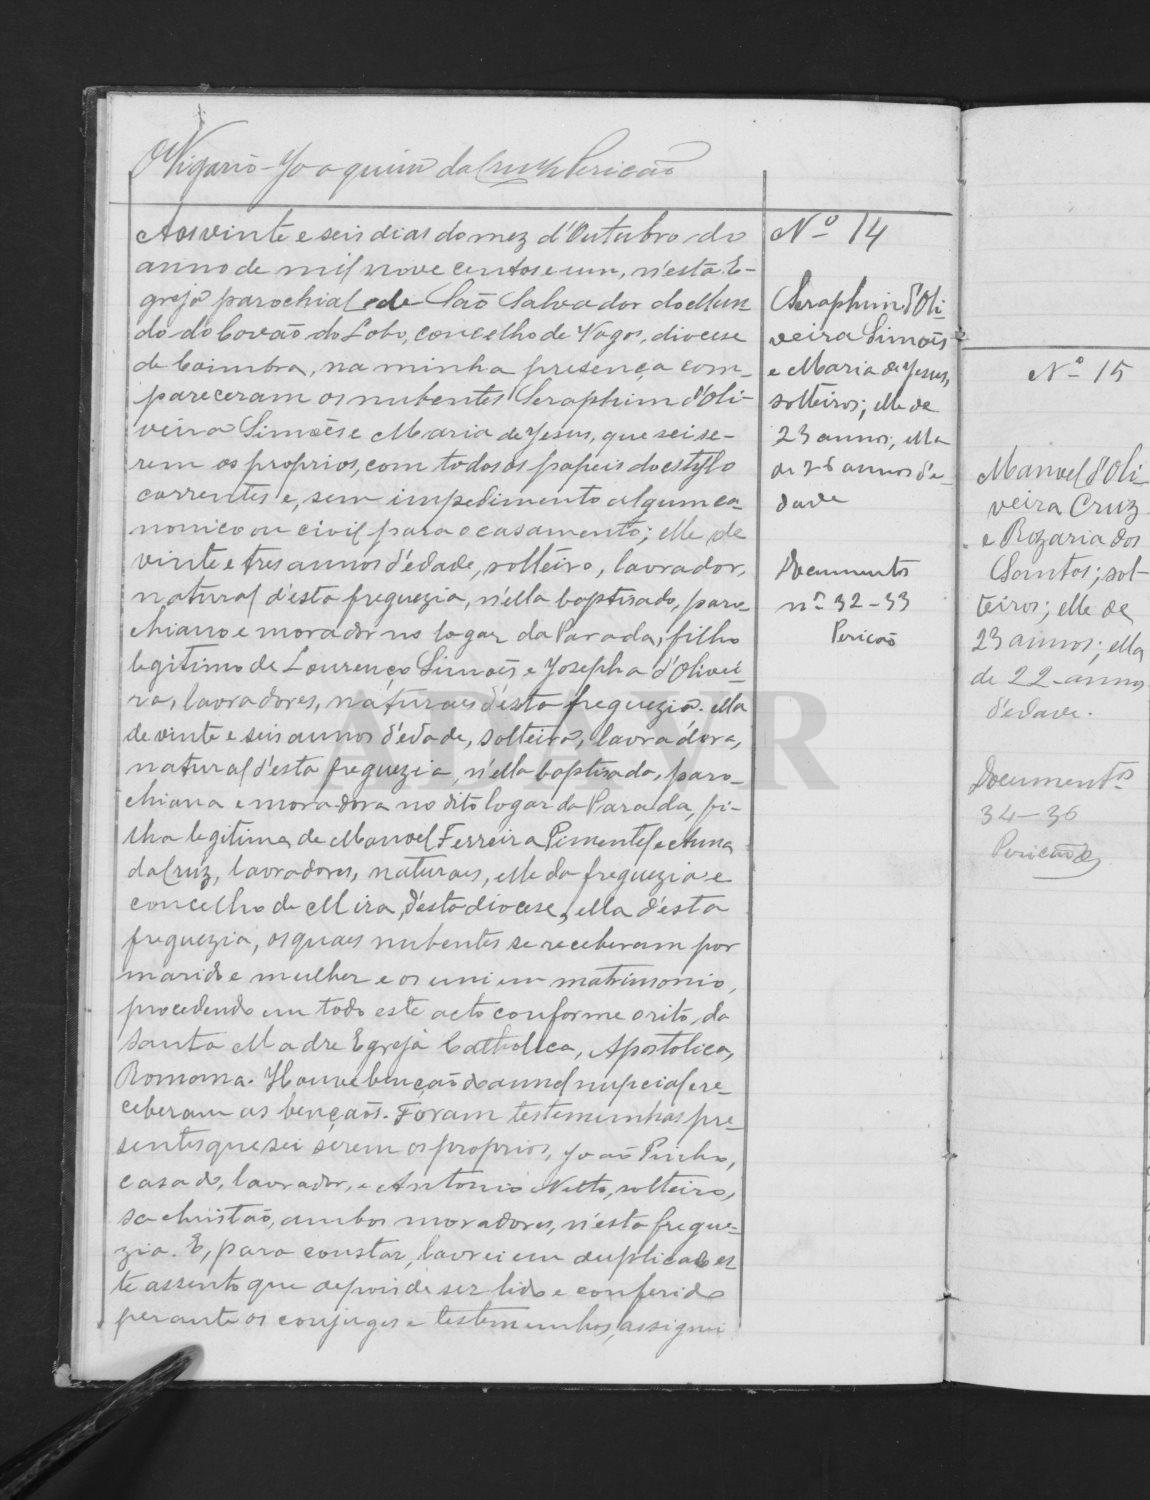 O Vigario Joaquim da Cruz Pericão
Aos vinte e seis dias do mez d'Outubro do
anno de mil nove centos e um, n'esta E-
greja parochial de São Salvador do Mun
do do Covão do Lobo, concelho de Vagos, diocese
de Coimbra, na minha presença com-
pareceram os nubentes Seraphim d'Oli-
veira Simões e Maria de Jesus, que sei se-
rem os proprios, com todos os papeis do estylo
correntes e, sem impedimento algum ca-
nonico ou civil para o casamento; elle de
vinte e tres annos d'edade, solteiro, lavrador,
natural d'esta freguezia, n'ella baptisado, paro-
chiano e morador no logar da Parada, filho
legitimo de Lourenço Simões e Josepha d'Olivei-
ra, lavradores, naturaes d'esta freguezia. ella
de vinte e seis annos d'edade, solteira, lavradora,
natural d'esta freguezia, n'ella baptisada, paro-
chiana e moradora no dito logar da Parada, fi-
lha legitima de Manoel Ferreira Pimentel e Anna
da Cruz, lavradores, naturaes, elle da freguezia e
concelho de Mira, d'esta diocese, ella d'esta
freguezia, os quaes nubentes se receberam por
marido e mulher e os uni em matrimonio,
procedendo em todo este acto conforme o rito da
Santa Madre Egreja Catholica, Apostolica,
Romana. Houve benção do annel nupcial e re-
ceberam as bençãos. Foram testemunhas pre-
sentes que sei serem os proprios, João Pinho,
casado, lavrador, e Antonio Netto, solteiro,
sachristão, ambos moradores, n'esta fregue-
zia. E, para constar, lavrei em duplicado es-
te assento que depois de ser lido e conferido
perante os conjuges e testemunhas, assignei
Nº 14
Seraphim d'Oli-
veira Simões
e Maria de Jesus,
solteiros; elle de
23 annos, ella
de 26 annos d'e-
dade
Documentos
nº 32-33
Pericão
Nº 15
Manoel d'Oli
veira Cruz
e Rozaria dos
Santos; sol-
teiros; elle de
23 annos; ella
de 22 annos
d'edade.
Documentos
34-36
Pericão
ADAVR